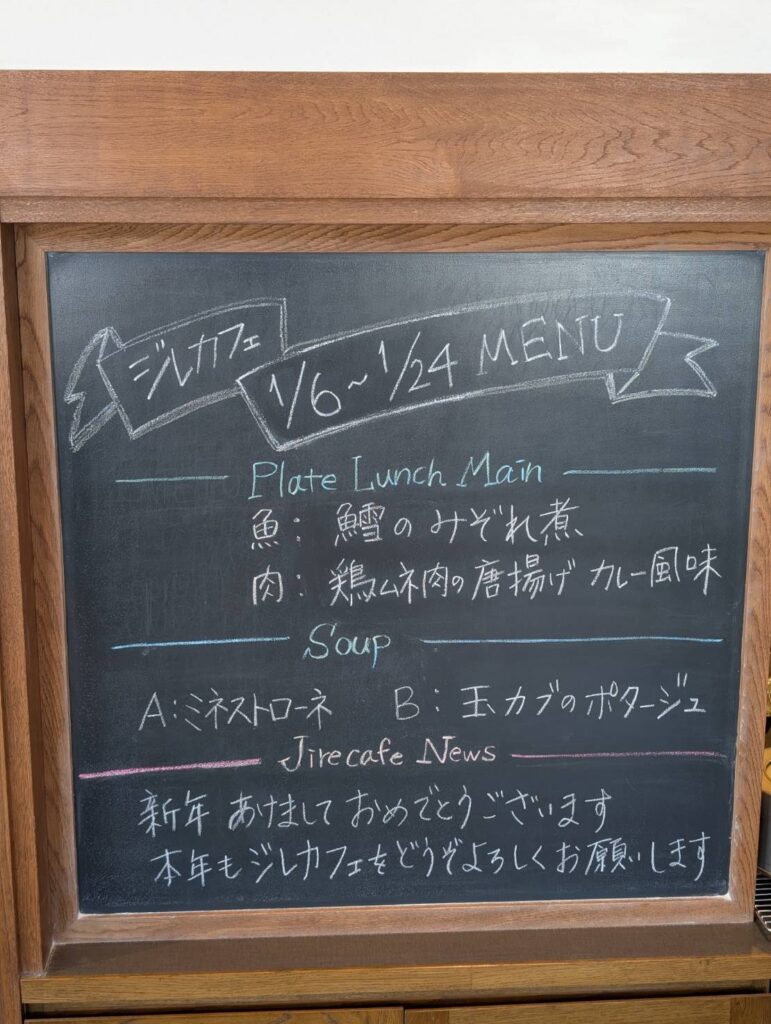 ジルカフェ 1/6~1/24 MENU
Plate Lunch Main
魚: 鱈のみぞれ煮
肉: 鶏ムネ肉の唐揚げ カレー風味
Soup
A:ミネストローネ B:玉カブのポタージュ
Jirecafe News
新年あけましておめでとうございます
本年もジルカフェをどうぞよろしくお願いします